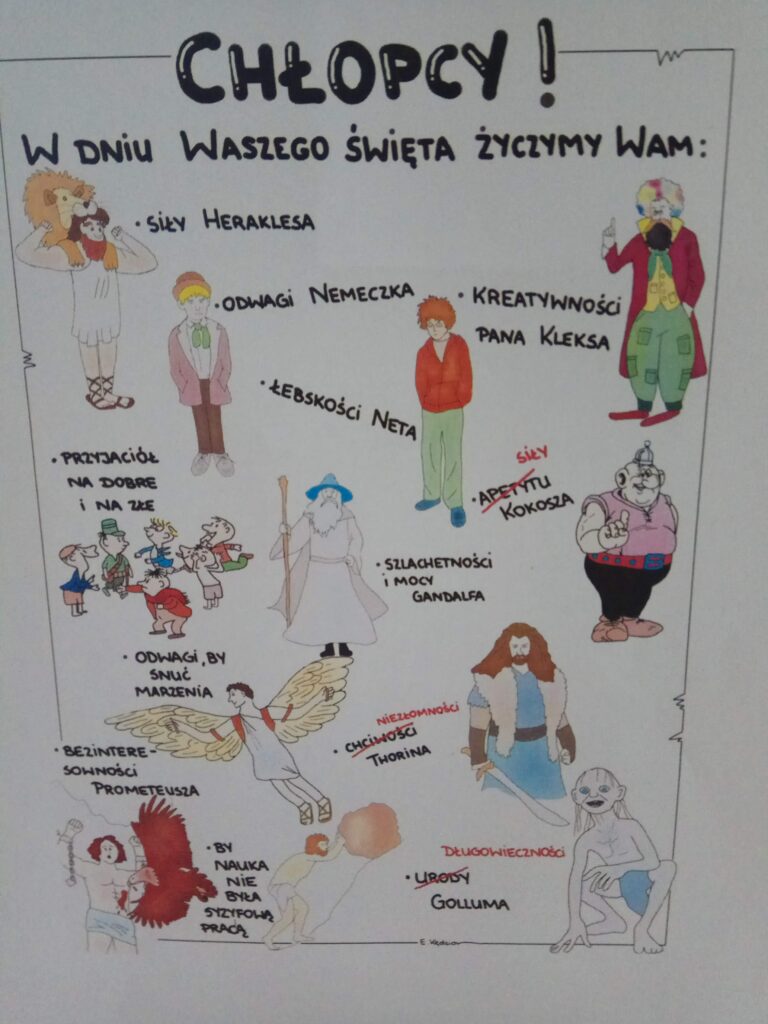 CHŁOPCY!
W DNIU WASZEGO ŚWIĘTA ŻYCZYMY WAM:
• SIŁY HERAKLESA
• ODWAGI NEMECZKA
• KREATYWNOŚCI
PANA KLEKSA
• ŁEBSKOŚCI NETA
• PRZYJACIÓŁ
NA DOBRE
I NA ZŁE
SIŁY
• APETYTU
KOKOSZA
• SZLACHETNOŚCI
I MOCY
GANDALFA
• ODWAGI, BY
SNUĆ
MARZENIA
NIEZŁOMNOŚCI
• CHCIWOŚCI
THORINA
• BEZINTERE-
SOWNOŚCI
PROMETEUSZA
• BY
NAUKA
NIE
BYŁA
SYZYFOWĄ
PRACĄ
DŁUGOWIECZNOŚCI
• URODY
GOLLUMA